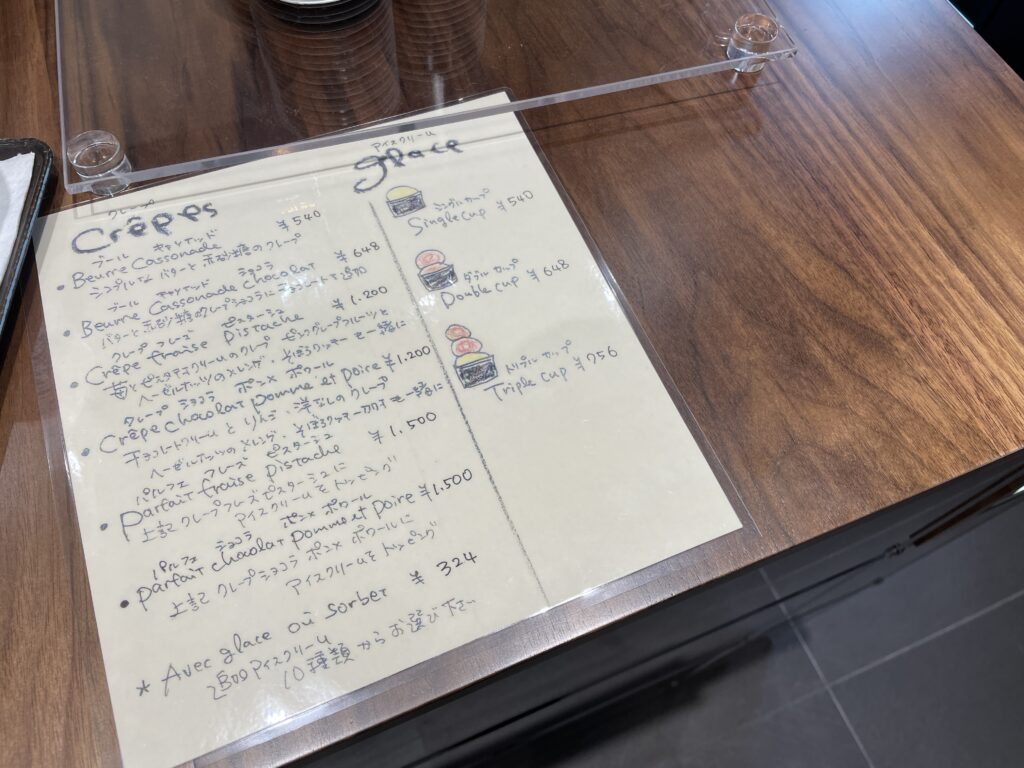 クレープ
Crêpes
ブール キャソナッド
Beurre Cassonade ¥540
シンプルな バターと 赤砂糖のクレープ
ブール キャソナッド ショコラ
Beurre Cassonade Chocolat ¥648
バターと赤砂糖のクレープにチョコレート追加
クレープ フレーズ ピスターシュ
Crêpe fraise Pistache ¥1.200
苺とピスタチオクリームのクレープ ピンクグレープフルーツと
ヘーゼルナッツのメレンゲ・そぼろクッキーと一緒に
クレープ ショコラ ポンメ ポワール
Crêpe chocolat pomme et poire ¥1.200
チョコレートクリームとりんご・洋なしのクレープ
ヘーゼルナッツのメレンゲ・そぼろクッキー と一緒に
パルフェ フレーズ ピスターシュ
Parfait fraise pistache ¥1.500
上記 クレープフレーズピスターシュに
アイスクリームをトッピング
パルフェ ショコラ ポンメ ポワール
Parfait chocolat pomme et poire ¥1.500
上記 クレープショコラ ポンメ ポワールに
アイスクリームをトッピング
★ Avec glace où sorbet ¥324
アイスクリーム
10種類からお選び下さい
アイスクリーム
glace
シングルカップ
Single cup ¥540
ダブルカップ
Double cup ¥648
トリプルカップ
Triple cup ¥756